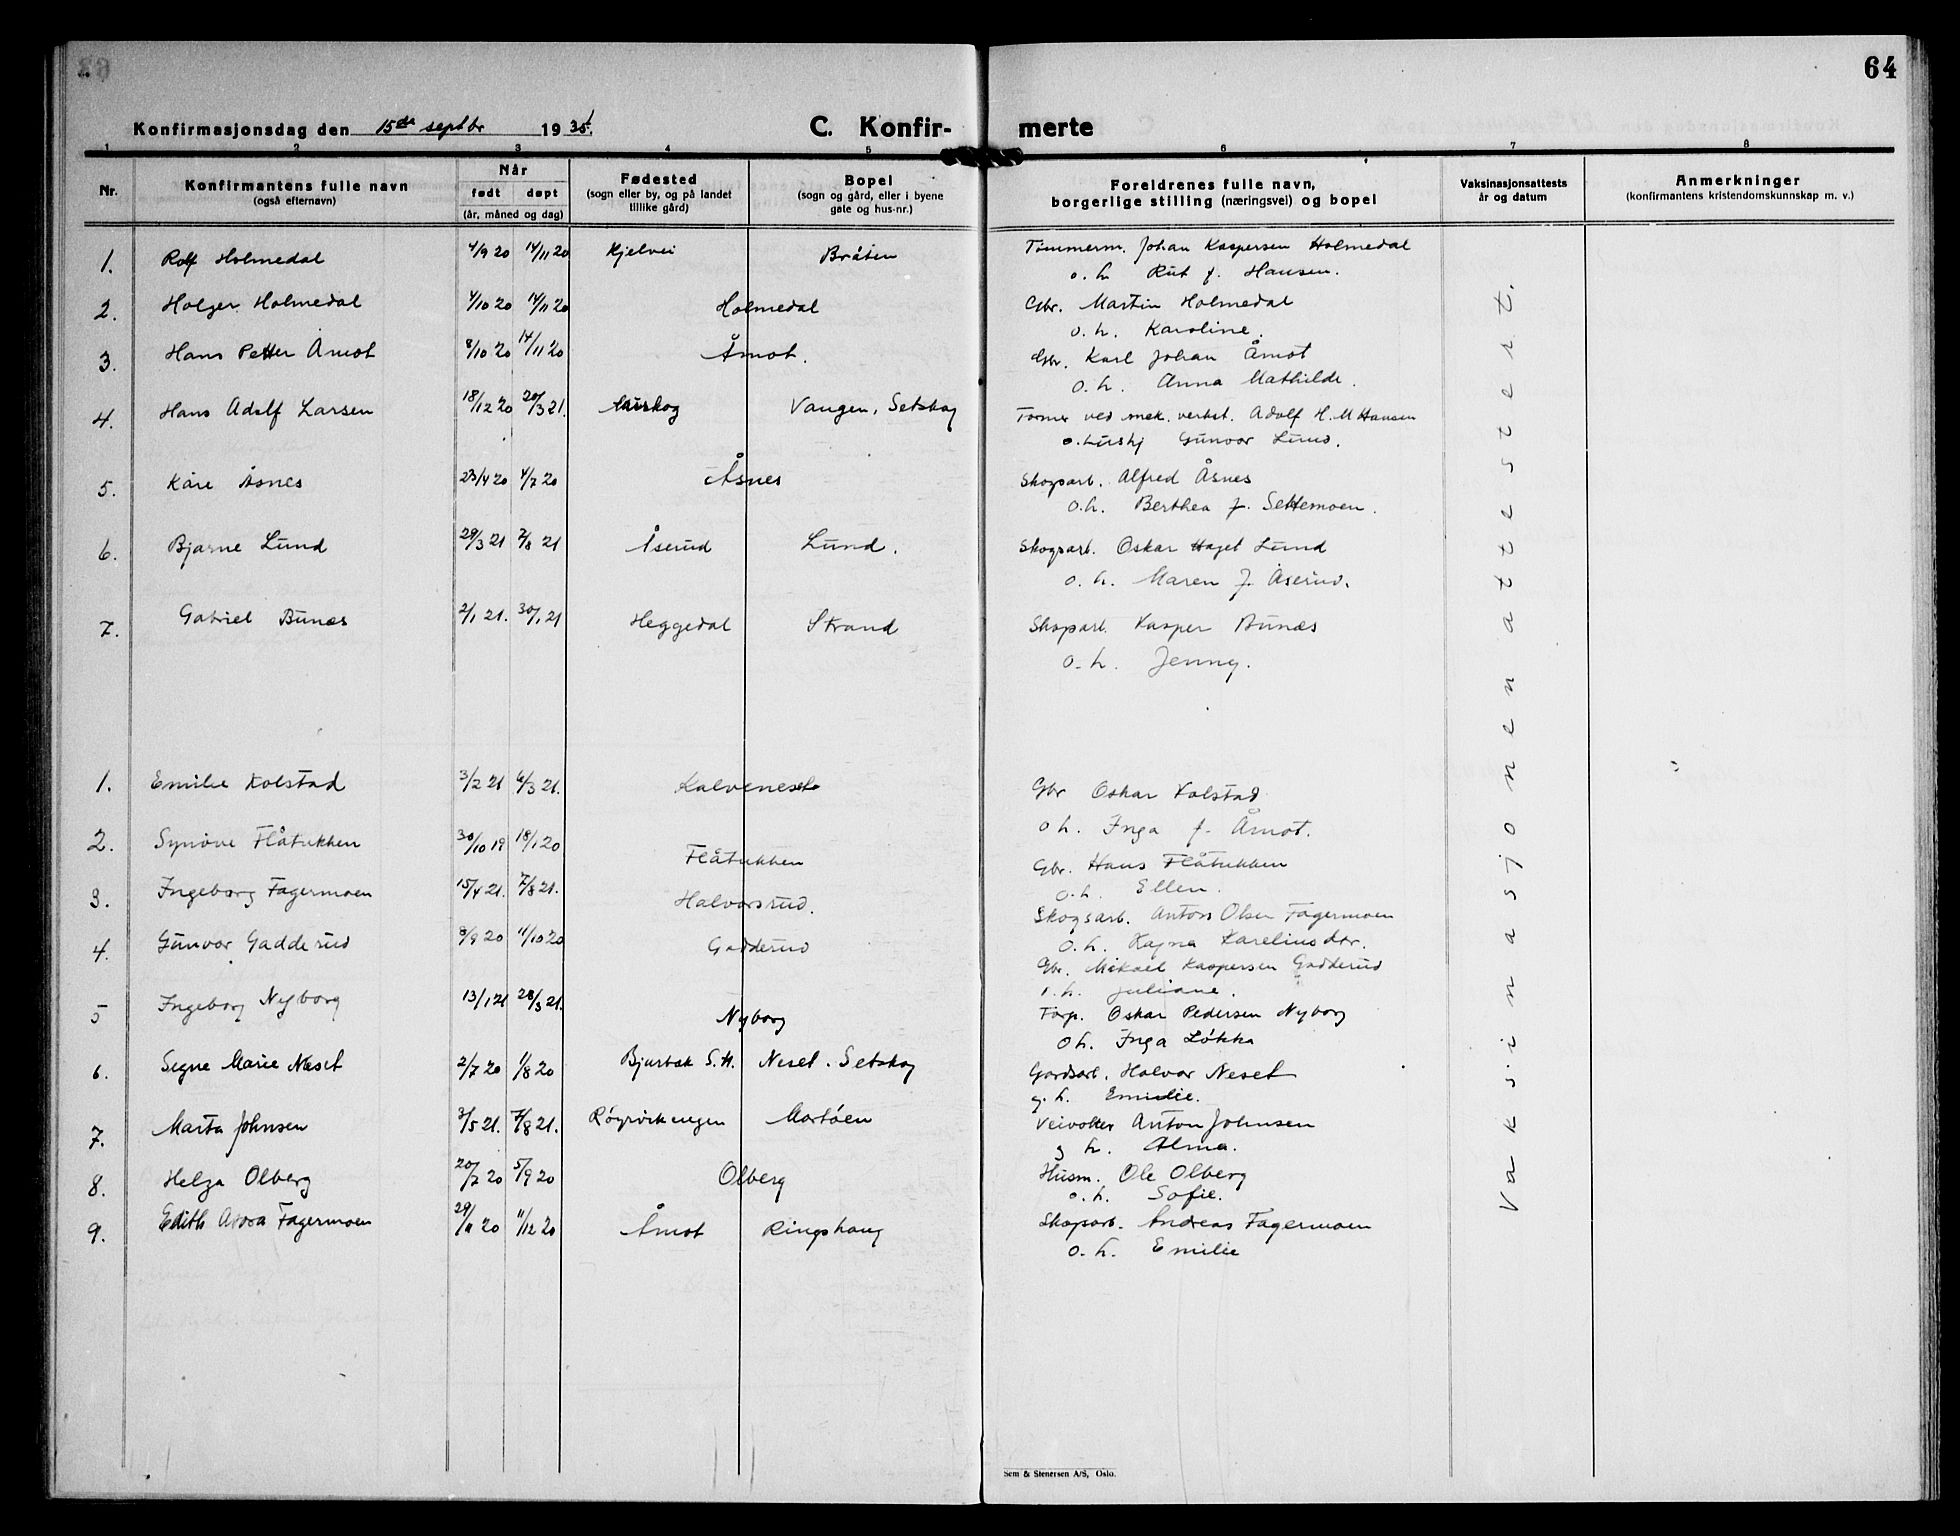 64
Konfirmasjonsdag den 15de septbr 1935.
C. Konfir- merte
1 2 3 4 5 6 7 8
Nr.
Konfirmantens fulle navn
(også efternavn)
Når
født døpt
(år, måned og dag)
Fødested
(sogn eller by, og på landet
tillike gård)
Bopel
(sogn og gård, eller i byene
gate og hus-nr.)
Foreldrenes fulle navn,
borgerlige stilling (næringsvei) og bopel
Vaksinasjonsattests
år og datum
Anmerkninger
(konfirmantens kristendomskunnskap m. v.)
1. Rolf Holmedal 4/9 20 14/11 20 Kjelvei Bråten Tømmerm. Johan Kaspersen Holmedal
o. h. Rut f. Hansen.
2. Holger Holmedal 4/10 20 14/11 20 Holmedal Gbr. Martin Holmedal
o. h. Karoline.
3. Hans Petter Åmot 8/10 20 14/11 20 Åmot. Gbr. Karl Johan Åmot
o. h. Anna Mathilde.
4. Hans Adolf Larsen 18/12 20 20/3 21. Aurskog Vangen, Setskog ved mek. verkst. Adolf H. M Hansen
Gunvor Lund.
5. Kåre Åsnes 23/4 20 4/7 20 Åsnes Skogsarb. Alfred Åsnes
o. h. Berthea f. Settemoen.
6. Bjarne Lund 29/3 21 7/8 21 Åserud Lund. Skogsarb. Oskar Lund
o. h. Maren f. Åserud.
7. Gabriel Bunes 2/1 21. 30/1 21 Heggedal Strand Skogsarb. Kasper Bunes
o. h. Jenny.
1. Emilie Kolstad 3/2 21 6/3 21. Kalveneset Gbr Oskar Kolstad
o h. Inga f. Åmot.
2. Synøve Flåtukken 30/10 19 18/1 20 Flåtukken Gbr. Hans Flåtukken
o. h. Ellen.
3. Ingeborg Fagermoen 15/4 21. 7/8 21. Halvorsrud. Skogsarb. Anton Olsen Fagermoen
o. h. Ragna Kareliusdtr.
4. Gunvor Gadderud 8/9 20 11/10 20 Gadderud Gbr. Mikael Kaspersen Gadderud
o. h. Juliane.
5 Ingeborg Nyborg 13/1 21 28/3 21. Nyborg Torp. Oskar Pedersen Nyborg
o h. Inga Løkka
6. Signe Marie Neset 2/7 20 1/8 20 Bjurbæk S. H. Neset. Setskog Gårdsarb. Halvor Neset
g. h. Emilie.
7. Marta Johnsen 3/5 21. 7/8 21. Martöen Veivokter Anton Johnsen
g h. Alma.
8. Helga Olberg 20/7 20 5/9 20 Olberg Husm. Ole Olberg
o. h. Sofie.
9. Edith Fagermoen 29/11 20 11/12 20 Åmot Ringshaug Skogsarb. Andreas Fagermoen
o. h. Emilie
Vaksinasjonen attestert.
Sem & Stenersen A/S, Oslo.